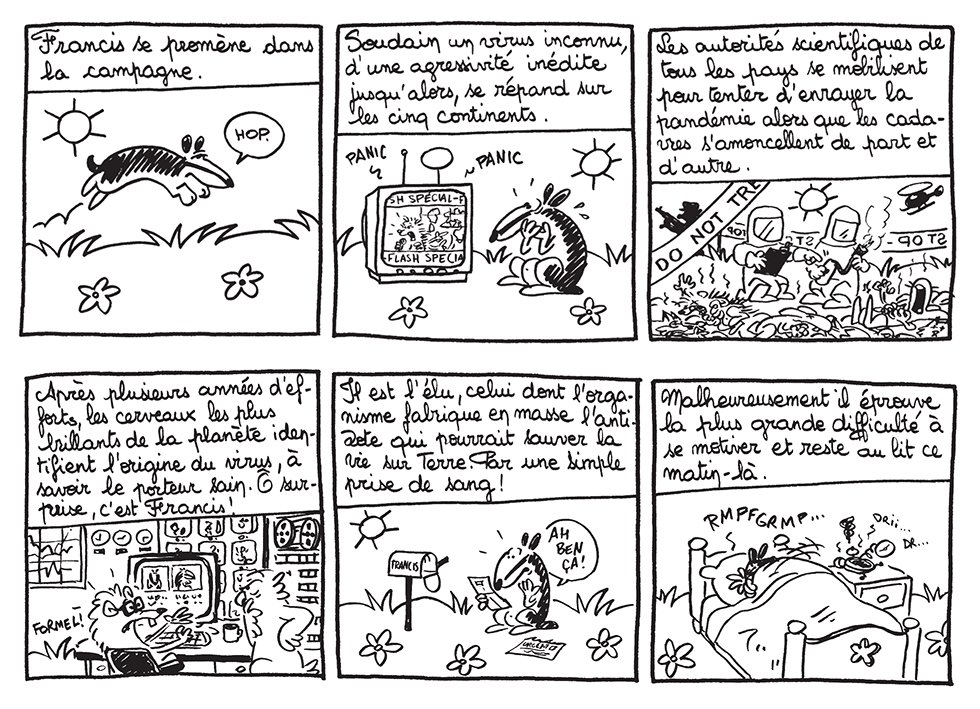 Francis se promène dans
la campagne.
HOP.
Soudain un virus inconnu,
d'une agressivité inédite
jusqu'alors, se répand sur
les cinq continents.
PANIC
PANIC
SH SPÉCIAL-F
FLASH SPECIA
Les autorités scientifiques de
tous les pays se mobilisent
pour tenter d'enrayer la
pandémie alors que les cada-
vres s'amoncellent de part et
d'autre.
DO NOT TRE
STOP-
Après plusieurs années d'ef-
forts, les cerveaux les plus
brillants de la planète iden-
tifient l'origine du virus, à
savoir le porteur sain. Ô sur-
prise, c'est Francis!
FORMEL!
Il est l'élu, celui dont l'orga-
nisme fabrique en masse l'anti-
dote qui pourrait sauver la
vie sur Terre. Par une simple
prise de sang!
FRANCIS
AH
BEN
ÇA!
URGENT
Malheureusement il éprouve
la plus grande difficulté à
se motiver et reste au lit ce
matin-là.
RMPFGRMP...
DRII...
DR...